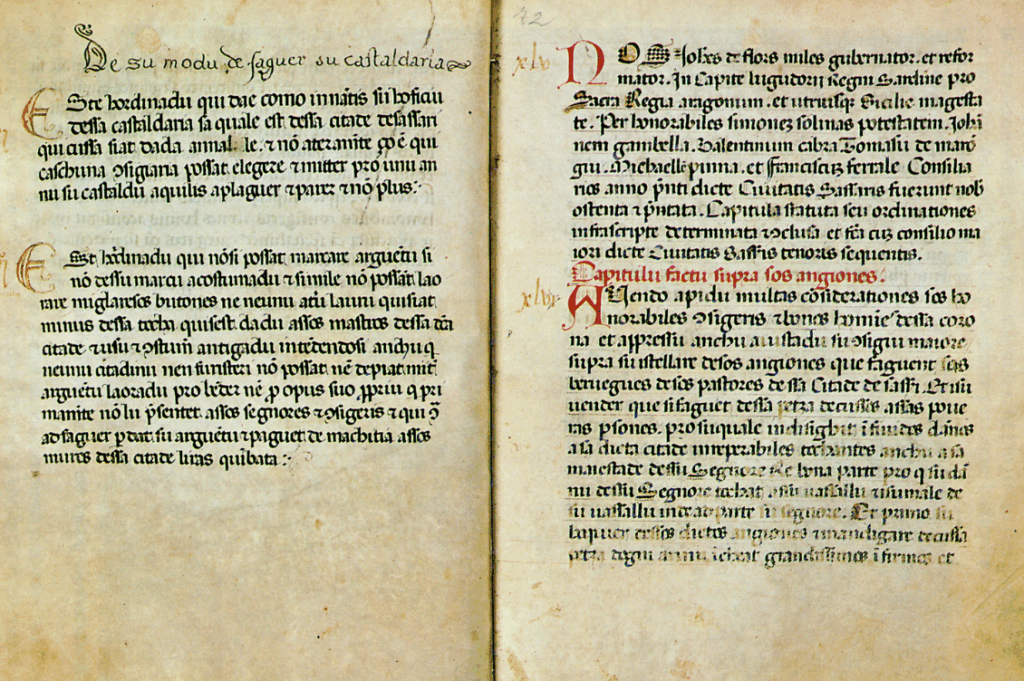 De su modu de faguer su castaldaria
ESte hordinadu qui dae como innātis su hoficiu
dessa castaldaria sa quale est dessa citade desassari
qui cussa siat dada annal.le. & nō ateramēte çō ē qui
caschuna ꝯsigiaria possat elegere & mitter pro unu an
nu su castaldu aquilis aplaguer & parer & nō plus:
ESt hordinadu qui nōsi possat marcare argūetu si
nō dessu marcu acostumadu & simile nō possāt lao
rare miglaresos butones ne neunu atū lauru qui siat
minus dessa techa quisest dadu assos mastros dessa dcā
citade & usu & ꝯstumē antigadu intēdendosi anchu q
neunu citadinu nen furisteri nō possat nē depiat mīt
argūetu laoradu pro bēder nē ꝑ opus suo ꝓpriu q pri
mamēte nō lu p̄sentet assos segnores & ꝯsigeris & qui
ad faguer ꝑdat su argūetu & paguet de machitia assos
mures dessa citade liras quībata:
72
xlv
NOS Johēs de flors miles gubernator. et refor
mator. In Capite lugudorii Regni Sardine pro
Sacra Regia aragonum. et utriusqꝫ Sicilie magesta
te. Per honorabiles simonez solinas potestatem. Johā
nem gambella. Valentinum cabra Tomasū de maro
giu. Michaelle pinna. et franciscuꝫ ferrale Consilia
rios anno p̄nti dicte Ciuitatis Sassaris fuerunt nob
ostenta et p̄ntata. Capitula statuta seu ordinationes
infrascripte determinata & clusa et fca cuꝫ consilio ma
iori dicte Ciuitatis Sassris tenoris sequentis.
Capitulu factu supra sos angiones.
xlvi
AUendo apidu multas cōsiderationes sos ho
norabiles ꝯsigeris & bonos homīe dessa coro
na et appressu anchu aiustadu su ꝯsigiu maiore
supra su istellare desos angiones que faguent sos
beruegues desos pastores dessa Citade de sassi. Et su
uender que si faguet dessa petra de cussos assas poue
ras ꝑsones. pro su quale indisighit īfinidos dānos
a sa dicta citade irreperabiles anchu a sa
maiestade dessu Segnore Re bona parte pro q su dā
nu dessu Segnore uassallu & su male de
su uassallu inde ad parte su segnore. Et primo su
dessos dictos angiones & mandigare de cussa
petra grandissimos et